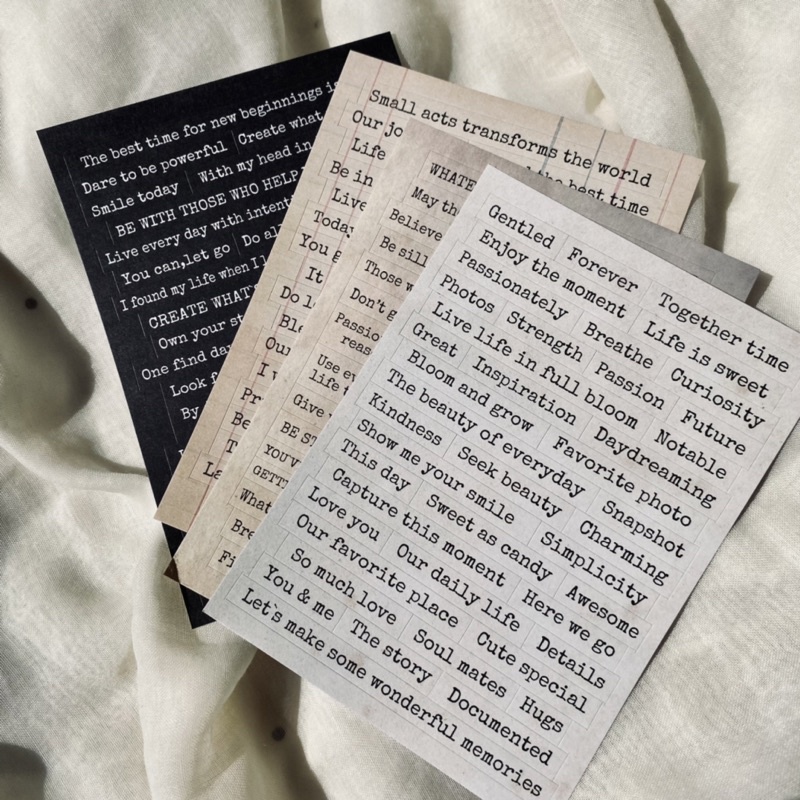 The best time for new beginnings
Dare to be powerful Create what
Smile today With my head in
BE WITH THOSE WHO HELP
Live every day with
You can,let go Do
I found my life when I
CREATE
Own your
One find
Look
By
Small acts transforms the world
Our
Life the best time
Be in
Live
You
It
Do
I
May
Believe
Be
Those w
Don't
Use
life
Give
BE
What
Gentled Forever Together time
Enjoy the moment Life is sweet
Passionately Breathe Curiosity
Photos Strength Passion Future
Live life in full bloom Notable
Great Inspiration Daydreaming
Bloom and grow Favorite photo
The beauty of everyday Snapshot
Kindness Seek beauty Charming
Show me your smile Simplicity
This day Sweet as candy Awesome
Capture this moment Here we go
Love you Our daily life Details
Our favorite place Cute special
So much love Soul mates Hugs
You & me The story Documented
Let`s make some wonderful memories